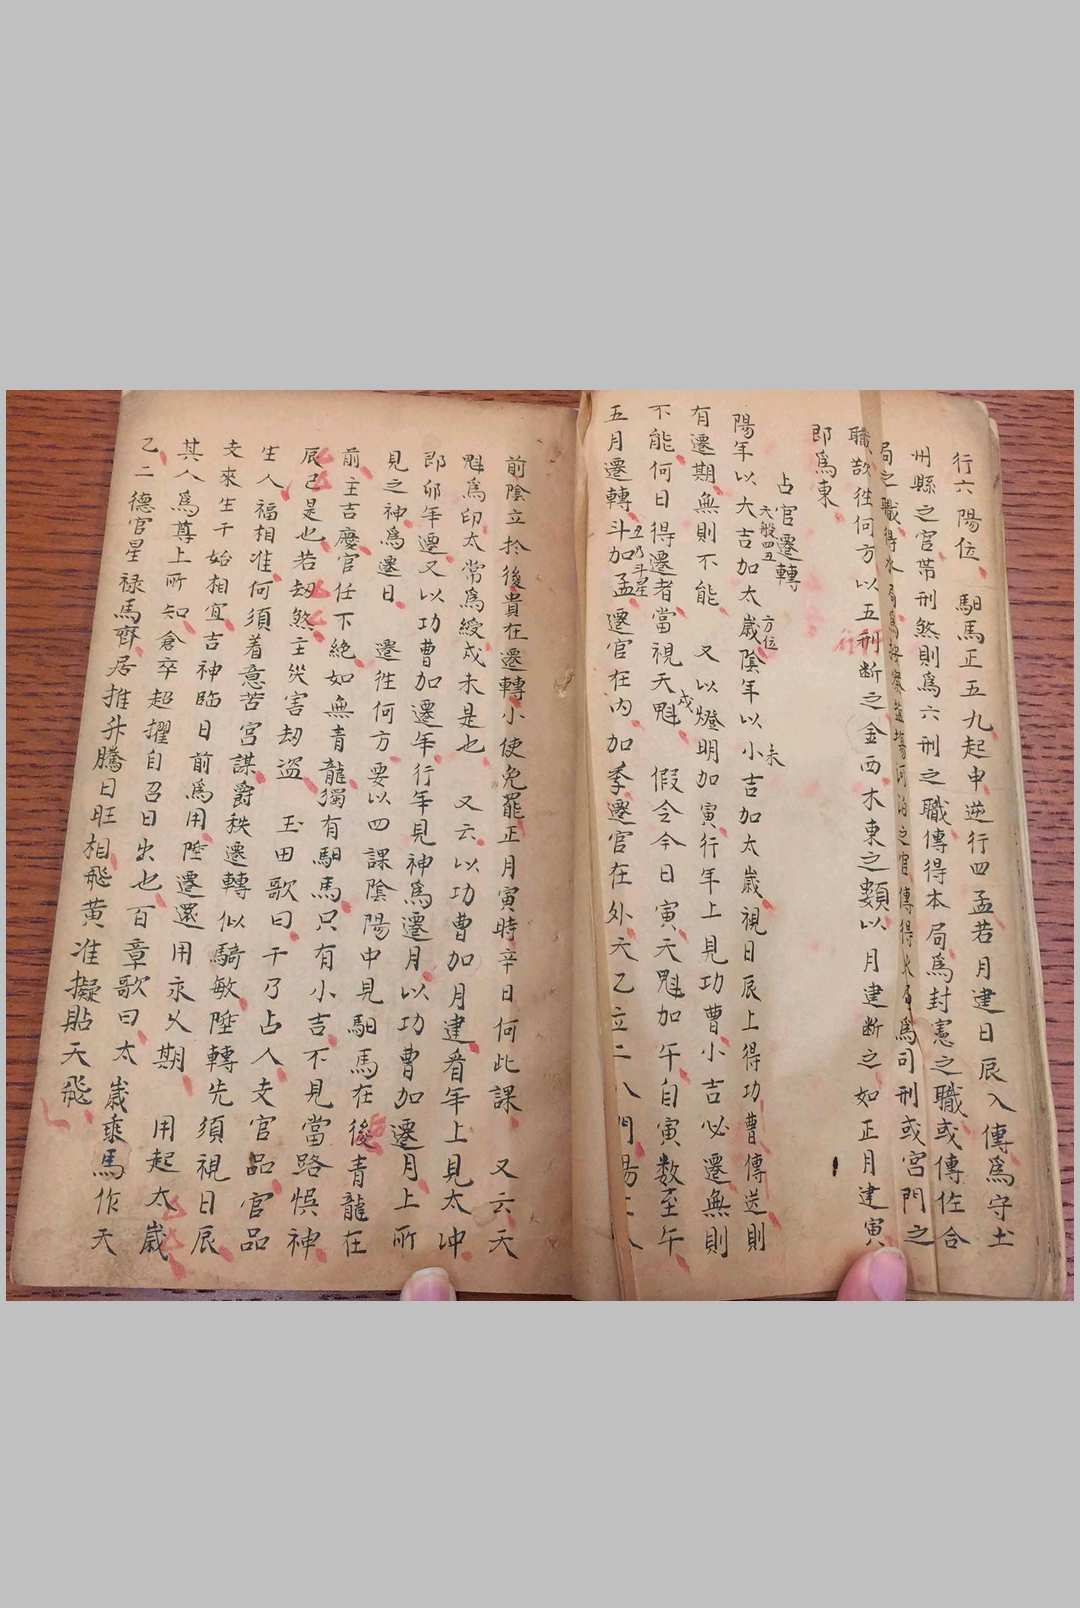 行六陽位　馹馬正五九起申逆行四孟若月建日辰入傳爲守土
州縣之官帶刑煞則爲六刑之職傳得本局爲封憲之職或傳佐合
局之職得水局爲之官傳得火局爲司刑或宮門之
職訣徃何方以五刑断之金西木東之類以月建断之如正月建寅
即爲東
行
占官遷轉
大般四五
方位
未
陽年以大吉加太歲陰年以小吉加太歲視日辰上得功曹傳送則
有遷期無則不能　又以燈明加寅行年上見功曹小吉必遷無則
戌
不能何日得遷者當視天魁　假令今日寅天魁加午自寅数至午
丑乃斗星
五月遷轉斗加孟遷官在内加季遷官在外天乙立二八門陽
前陰立於後貴在遷轉小使免罷正月寅時辛日何此課　又云天
魁爲印太常爲綬戍未是也　又云以功曹加月建看年上見太冲
即卯年遷又以功曹加遷年行年見神爲遷月以功曹加遷月上所
見之神爲遷日　遷徃何方要以四課陰陽中見馹馬在後青龍在
前主吉慶官任下絶如無青龍獨有馹馬只有小吉不見當路悞神
辰己是也若刼煞主災害刼盗　玉田歌曰干乃占人支官品官品
生人福相准何須着意苦宮謀爵秩遷轉似騎敏陞轉先須視日辰
支來生千始相宜吉神臨日前爲用陞遷還用永久期　用起太歲
其人爲尊上所知倉卒超擢自召日出也百章歌曰太歲乘馬作天
乙二德官星禄馬齊居推升騰日旺相飛黄准擬貼天飛